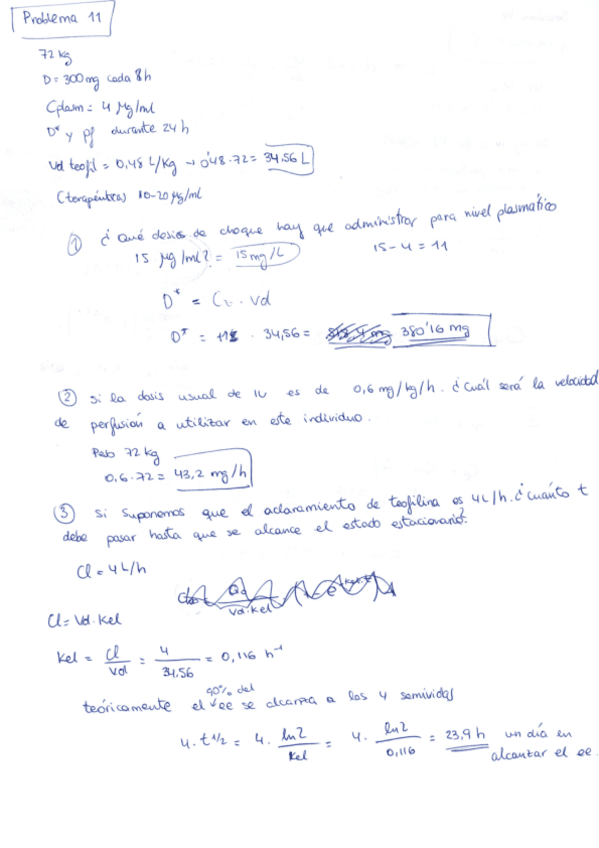 Problema 11
72 kg
D = 300 mg cada 8h
Cplasm = 4 µg/ml
D* y pf durante 24h
Vd teofil = 0,48 L/Kg → 0'48·72 = 34,56 L
C terapéuticas 10-20 µg/ml
① ¿Qué dosis de choque hay que administrar para nivel plasmático
15 µg/ml? = 15 mg/L 15-4 = 11
D* = C · Vd
D* = 11 · 34,56 = 380'16 mg
② Si la dosis usual de IV es de 0,6 mg/kg/h. ¿cuál será la velocidad
de perfusión a utilizar en este individuo.
Peso 72 kg
0,6·72 = 43,2 mg/h
③ Si suponemos que el aclaramiento de teofilina es 4L/h. ¿cuánto t
debe pasar hasta que se alcance el estado estacionario?
Cl = 4 L/h
Vd·kel
Cl = Vd·Kel
Kel = Cl/Vd = 4/34,56 = 0,116 h⁻¹
90% del
teóricamente el ee se alcanza a las 4 semividas
4·t1/2 = 4· ln2/Kel = 4· ln2/0,116 = 23,9 h un día en
alcanzar el ee.